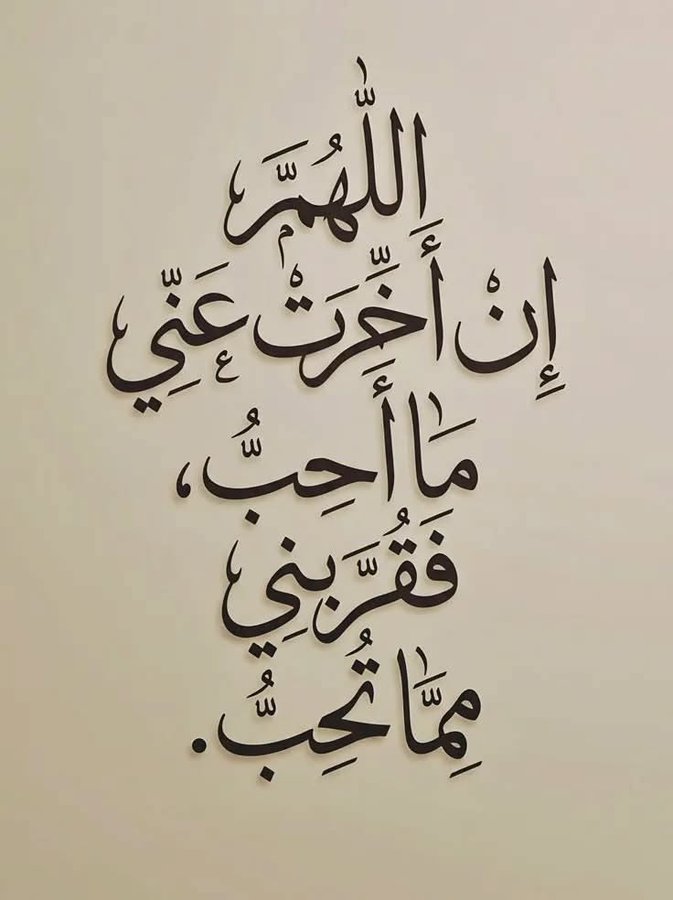 اللَّهُمَّ
إِنْ أَخَّرَتْ عَنِّي
مَا أَحِبُّ،
فَقُرَّبنِي
مِمَّا تُحِبُّ.